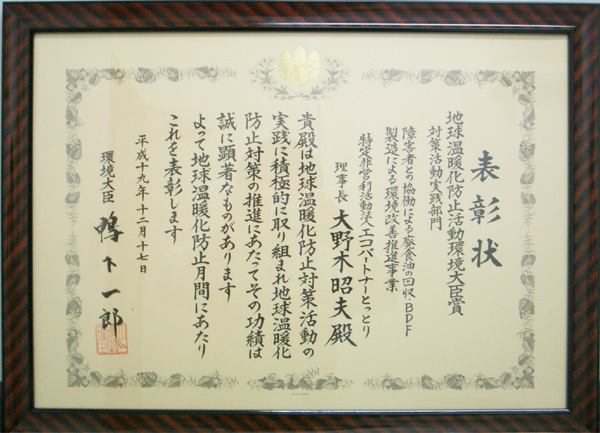 表彰状
地球温暖化防止活動環境大臣賞
対策活動実践部門
障害者との協働による廃食油の回収BDF
製造による環境改善推進事業
特定非営利活動法人エコパートナーとっとり
理事長 大野木昭夫殿
貴殿は地球温暖化防止対策活動の
実践に積極的に取り組まれ地球温暖化
防止対策の推進にあたってその功績は
誠に顕著なものがあります
よって地球温暖化防止月間にあたり
これを表彰します
平成十九年十二月十七日
環境大臣 鴨下一郎